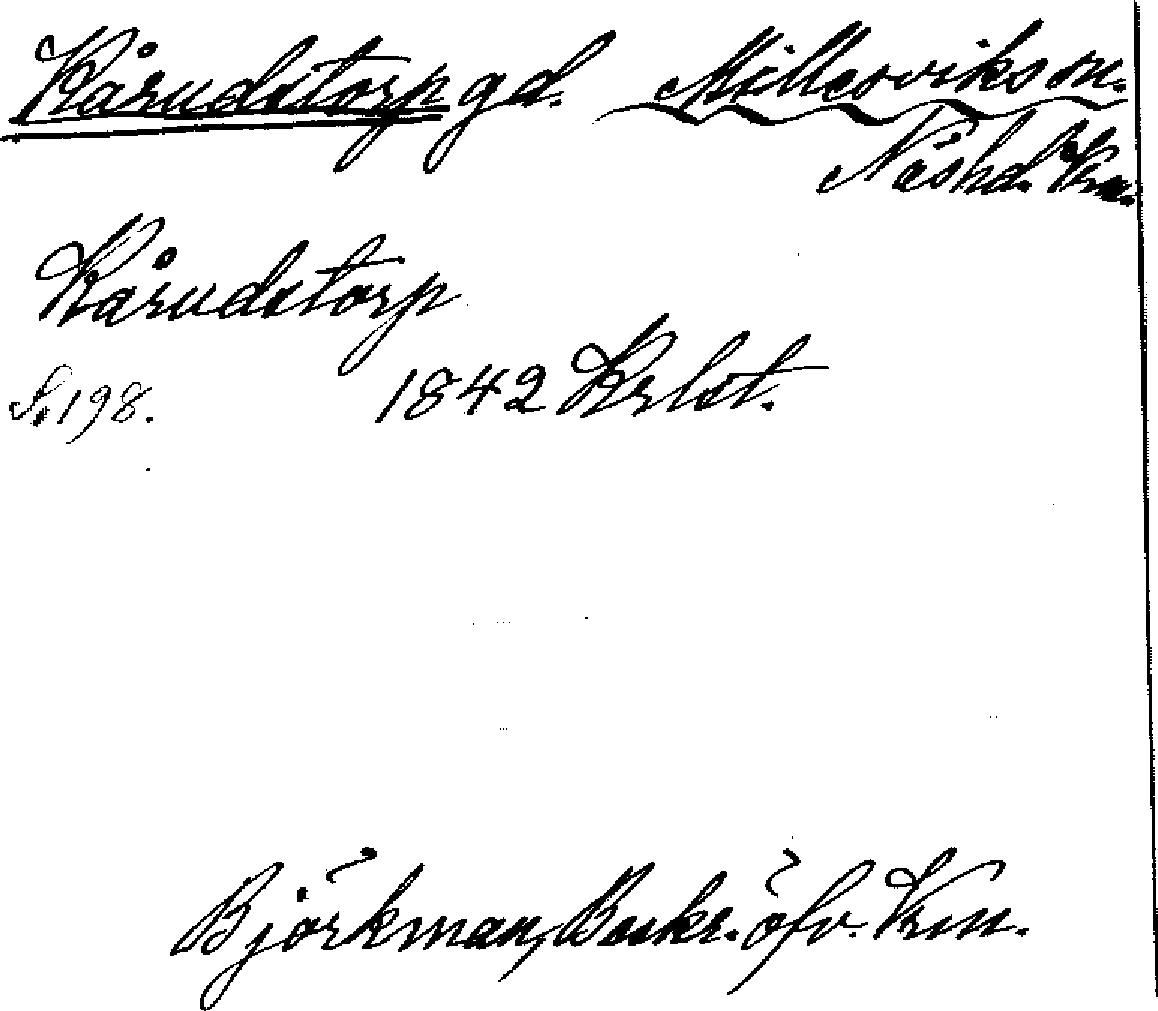 Kårudstorp gd. Millesviks sn.
Näs hd. Vrm.
Kårudstorp
S. 198. 1842 Krlst.
Björkman, Beskr. öfv. Vrm.